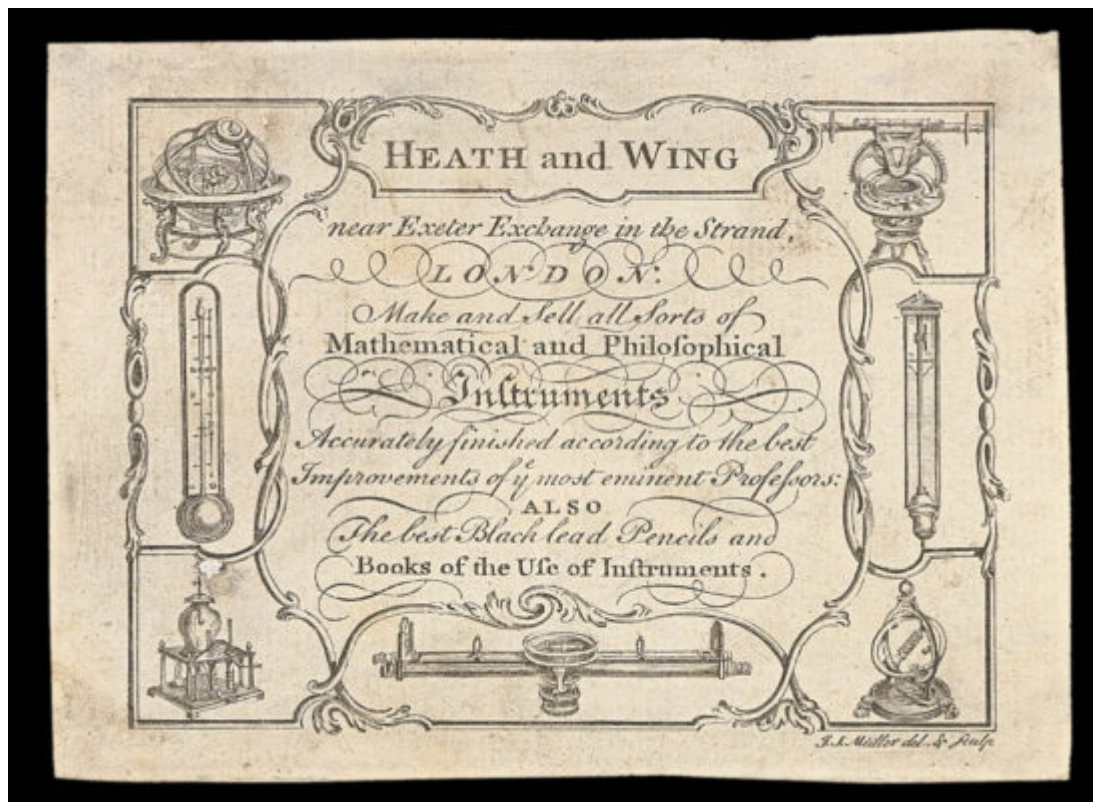 HEATH and WING
near Exeter Exchange in the Strand,
LONDON:
Make and Sell all Sorts of
Mathematical and Philoſophical
Inſtruments
Accurately finished according to the best
Improvements of yͤ most eminent Profeſsors:
ALSO
The best Black lead Pencils and
Books of the Uſe of Inſtruments.
J. S. Müller del. & Sculp